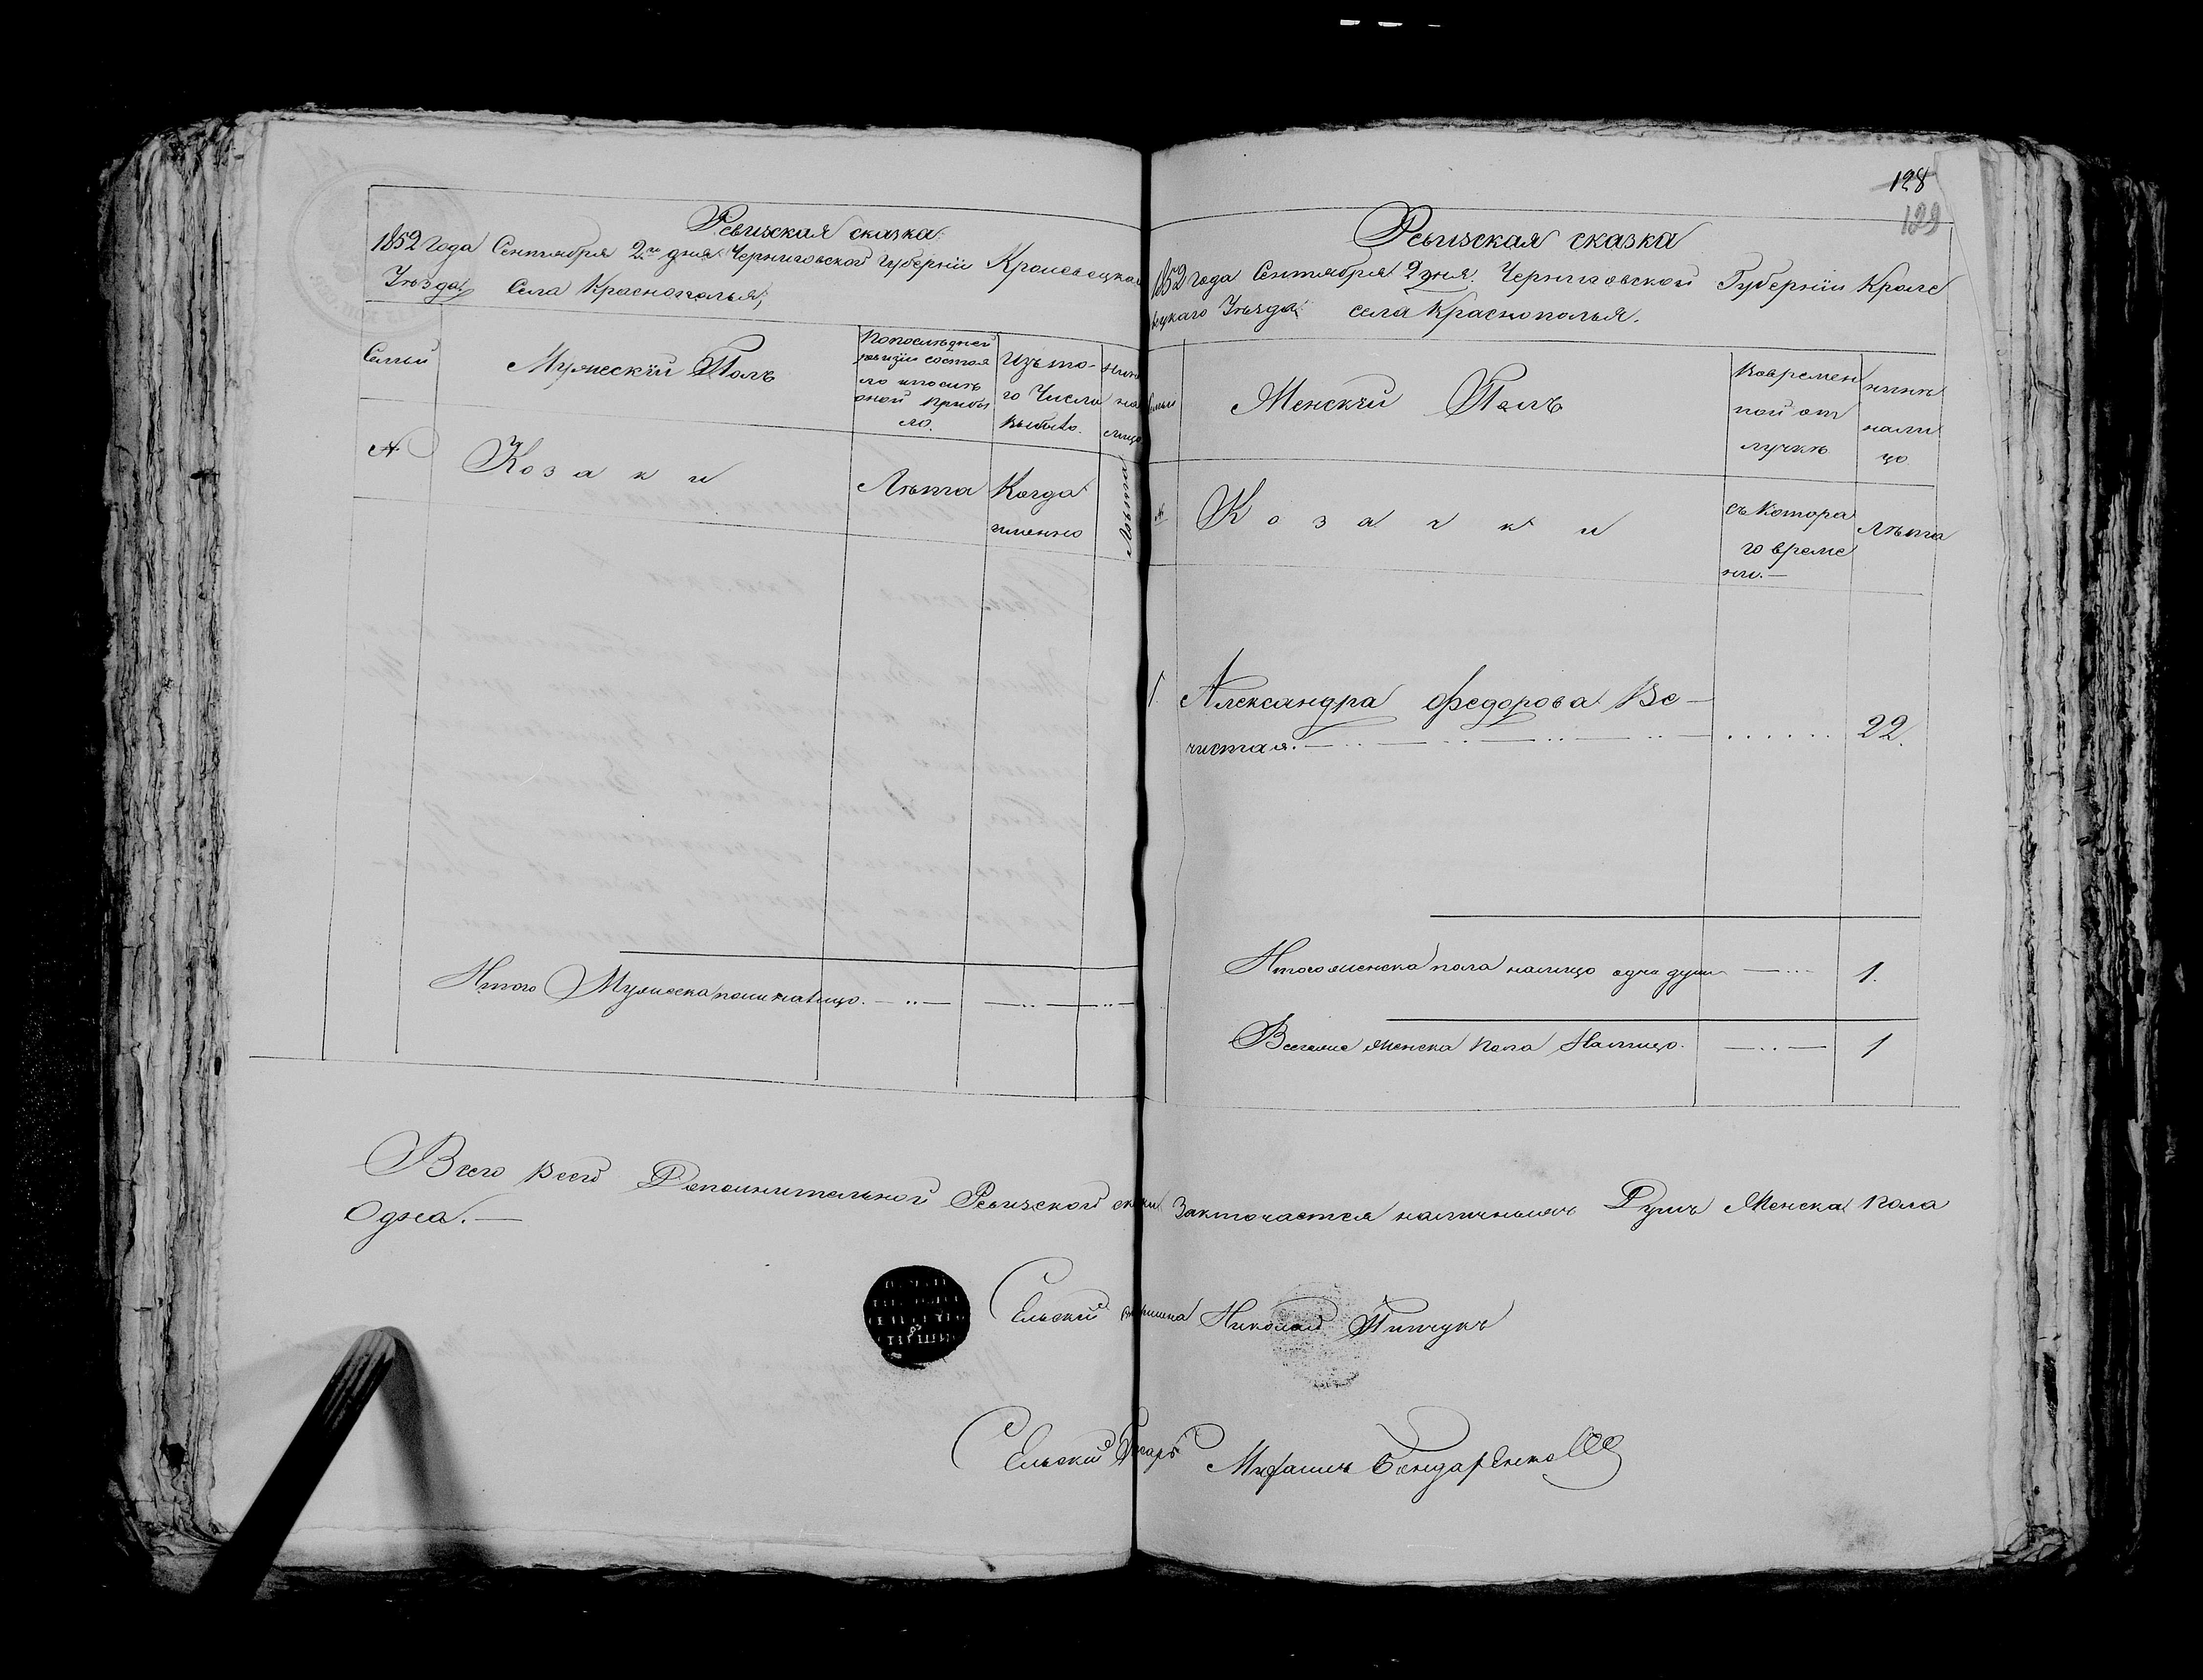 128
129
Ревизская сказка
1852 года Сентября 2го дня Черниговской Губерніи Кролевецкаго
Уѣзда, Села Краснополья,
Семьи
Мужескій Полъ
По последней
ревизіи состоя
ло и после
оной прибы
ло.
Изъ то-
го Числа
выбыло.
Ныне
на
лицо
№
Козаки
Лѣта
Когда
именно
Лѣта
Итого Мужеска пола налицо. — .. — — .. — — .. —
Ревизская сказка
1852 года Сентября 2 дня. Черниговской Губерніи Кроле
вецкаго Уѣзда, села Краснополья.
Семьи
Женскій Полъ
Во времен
ной от
лучкѣ
ныне
нали
цо
№
Козачки
съ котора
го време
ни. —
Лѣта
1. Александра Федорова Ве-
чистая. — .. — .. — .. — . . . . . . 22.
Итого женска пола налицо одна душа — ... 1.
Всего же женска Пола Налицо. — .. — 1
Всего в сей Дополнительной Ревизской сказки Заключается наличныхъ Душъ Женска Пола
Одна. —
Сельский старшина Николай Пинчукъ
Сельский Писарь Михаилъ Бондаренко